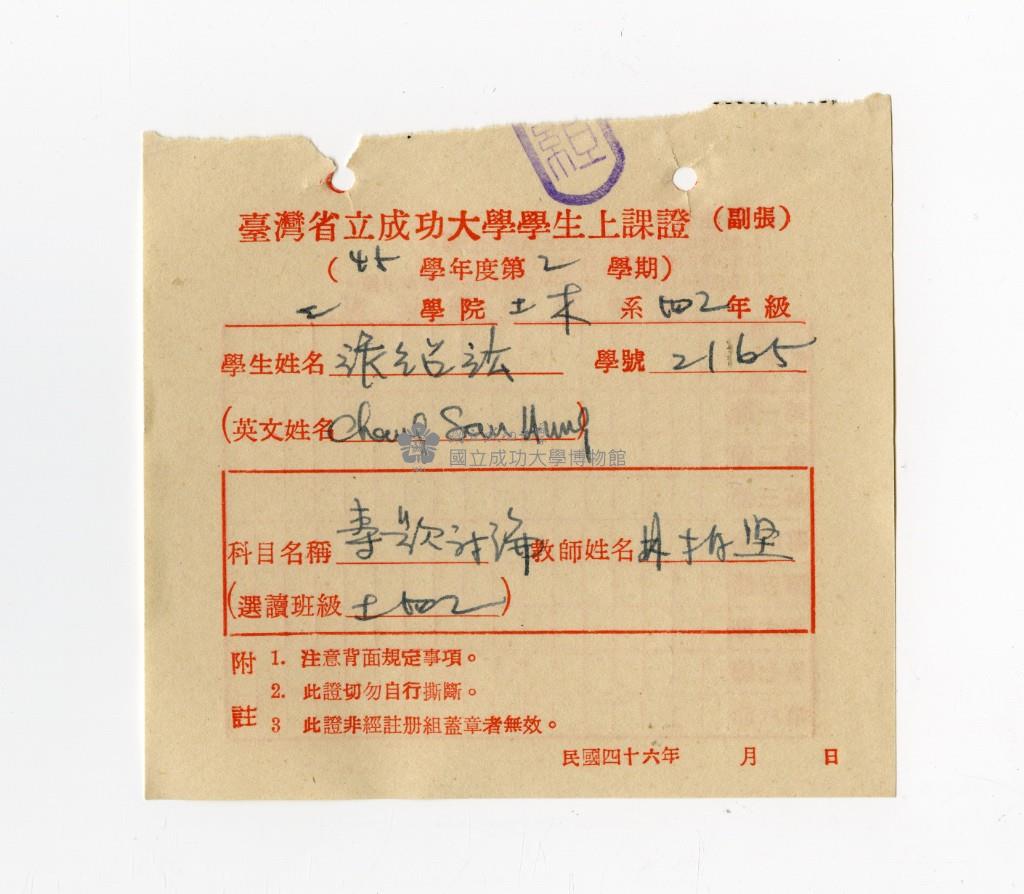 臺灣省立成功大學學生上課證 (副張)
(45 學年度第 2 學期)
工 學院 土木 系 四乙 年級
學生姓名 張紹法 學號 21165
(英文姓名 Chang Sau Hung)
國立成功大學博物館
科目名稱 專題討論 教師姓名 林柏堅
(選讀班級 土四乙)
附註
1. 注意背面規定事項。
2. 此證切勿自行撕斷。
3 此證非經註册組蓋章者無效。
民國四十六年 月 日